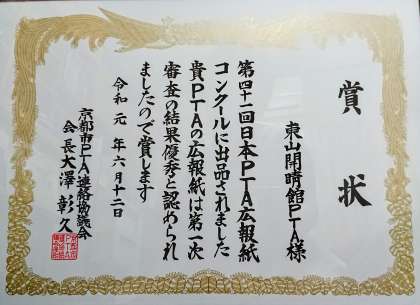 賞状
東山開晴館PTA様
第四十一回日本PTA広報紙
コンクールに出品されました
貴PTAの広報紙は第一次
審査の結果優秀と認められ
ましたので賞します
令和元年六月十二日
京都市PTA連絡協議会
会長大澤彰久